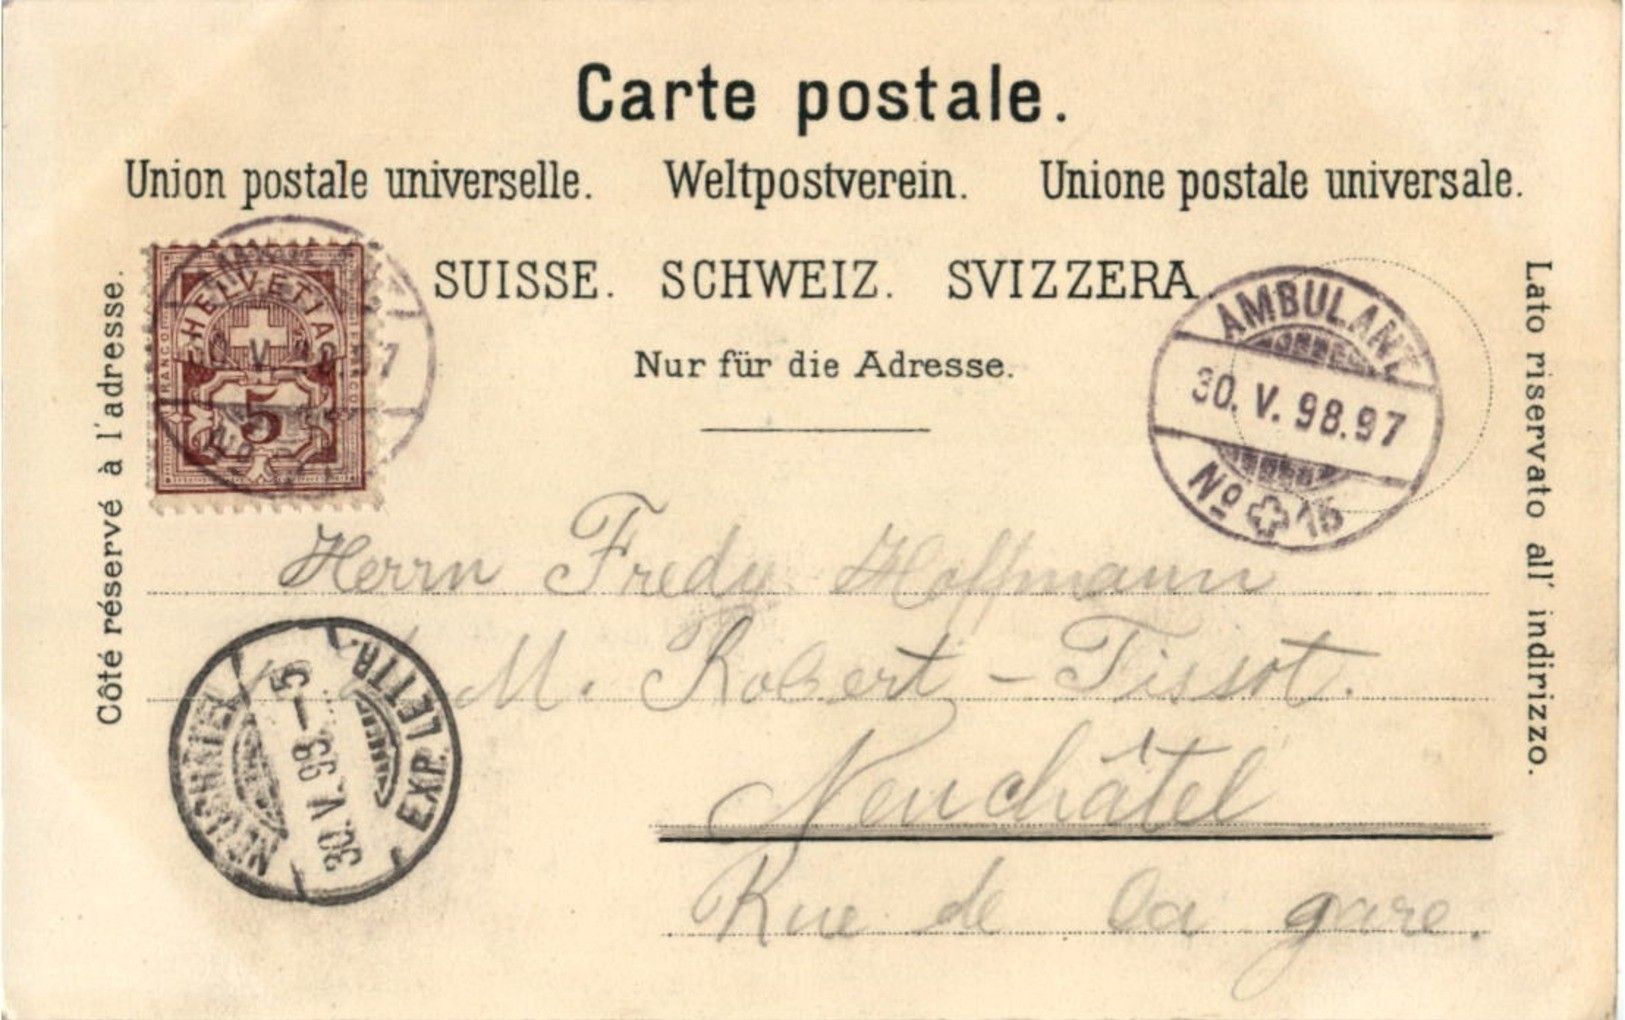 Carte postale.
Union postale universelle. Weltpostverein. Unione postale universale.
SUISSE. SCHWEIZ. SVIZZERA.
Nur für die Adresse.
Côté réservé à l'adresse.
Lato riservato all' indirizzo.
HELVETIA
FRANCO
5
AMBULANT
30. V. 98.97
No 15
Herrn Fredy Hoffmann
M. Robert-Tissot.
Neuchâtel
Rue de la gare.
NEUCHATEL
30. V. 98—5
EXP. LETTR.